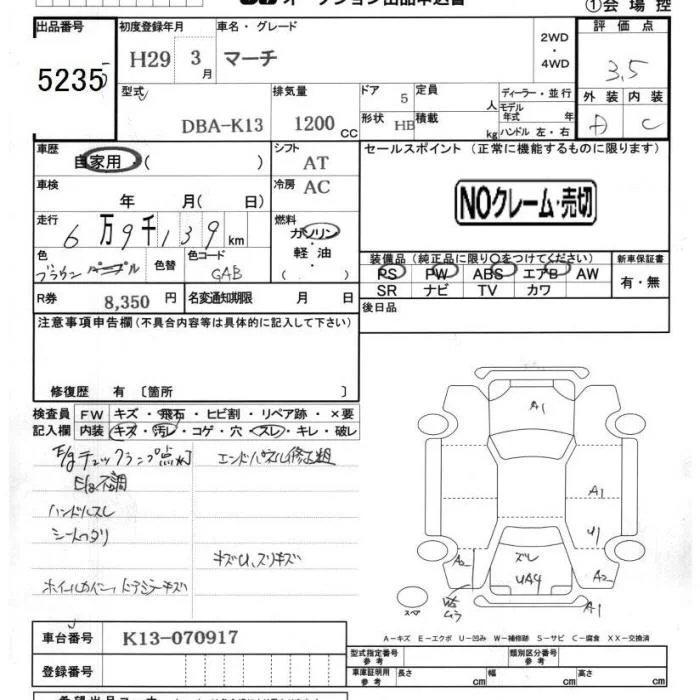 オークション出品申込書
①会場控
出品番号 初度登録年月 車名・グレード 2WD・4WD 評価点
5235 H29 3月 マーチ 3.5
型式 排気量 ドア 定員 ディーラー・並行 外装 内装
DBA-K13 1200cc 5 人 モデル年式 年 C
形状 HB 積載 kg ハンドル 左・右
車歴 シフト セールスポイント(正常に機能するものに限ります)
自家用・( ) AT
車検 冷房
年 月(日) AC
NOクレーム・売切
走行 燃料
6万9千139km ガソリン・軽油・( )
色 色替 色コード 装備品(純正品に限り○をつけてください) 新車保証書
ブラウン パープル GAB PS PW ABS エアB AW 有・無
SR ナビ TV カワ
R券 8,350円 名変通知期限 月 日 後日品
注意事項申告欄(不具合内容等は具体的に記入して下さい)
修復歴 有〔箇所 〕
検査員 FW キズ・飛石・ヒビ割・リペア跡・×要
記入欄 内装 キズ・汚レ・コゲ・穴・スレ・キレ・破レ
E/gチェックランプ点灯 エンドパネル修正粗
E/g不調
ハンドルスレ
シートヘタリ
キズU、スリキズ
ホイルカバー、ドアミラーキズ
A1
A1
U1
A2 ズレ A2
UA4
A1
スペア
A-キズ E-エクボ U-凹み W-補修跡 S-サビ C-腐食 XX-交換済
車台番号 K13-070917
登録番号
型式指定番号 参考 類別区分番号 参考
車庫証明用 参考 長さ cm 幅 cm 高さ cm